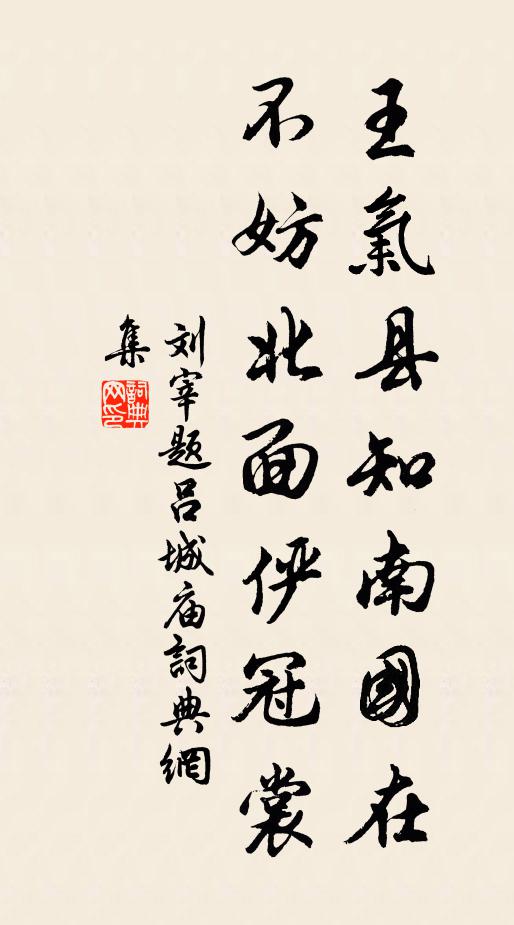 王氣县知南國在
不妨北面俨冠裳
刘宰题吕城庙詞典網
集
詞典网印